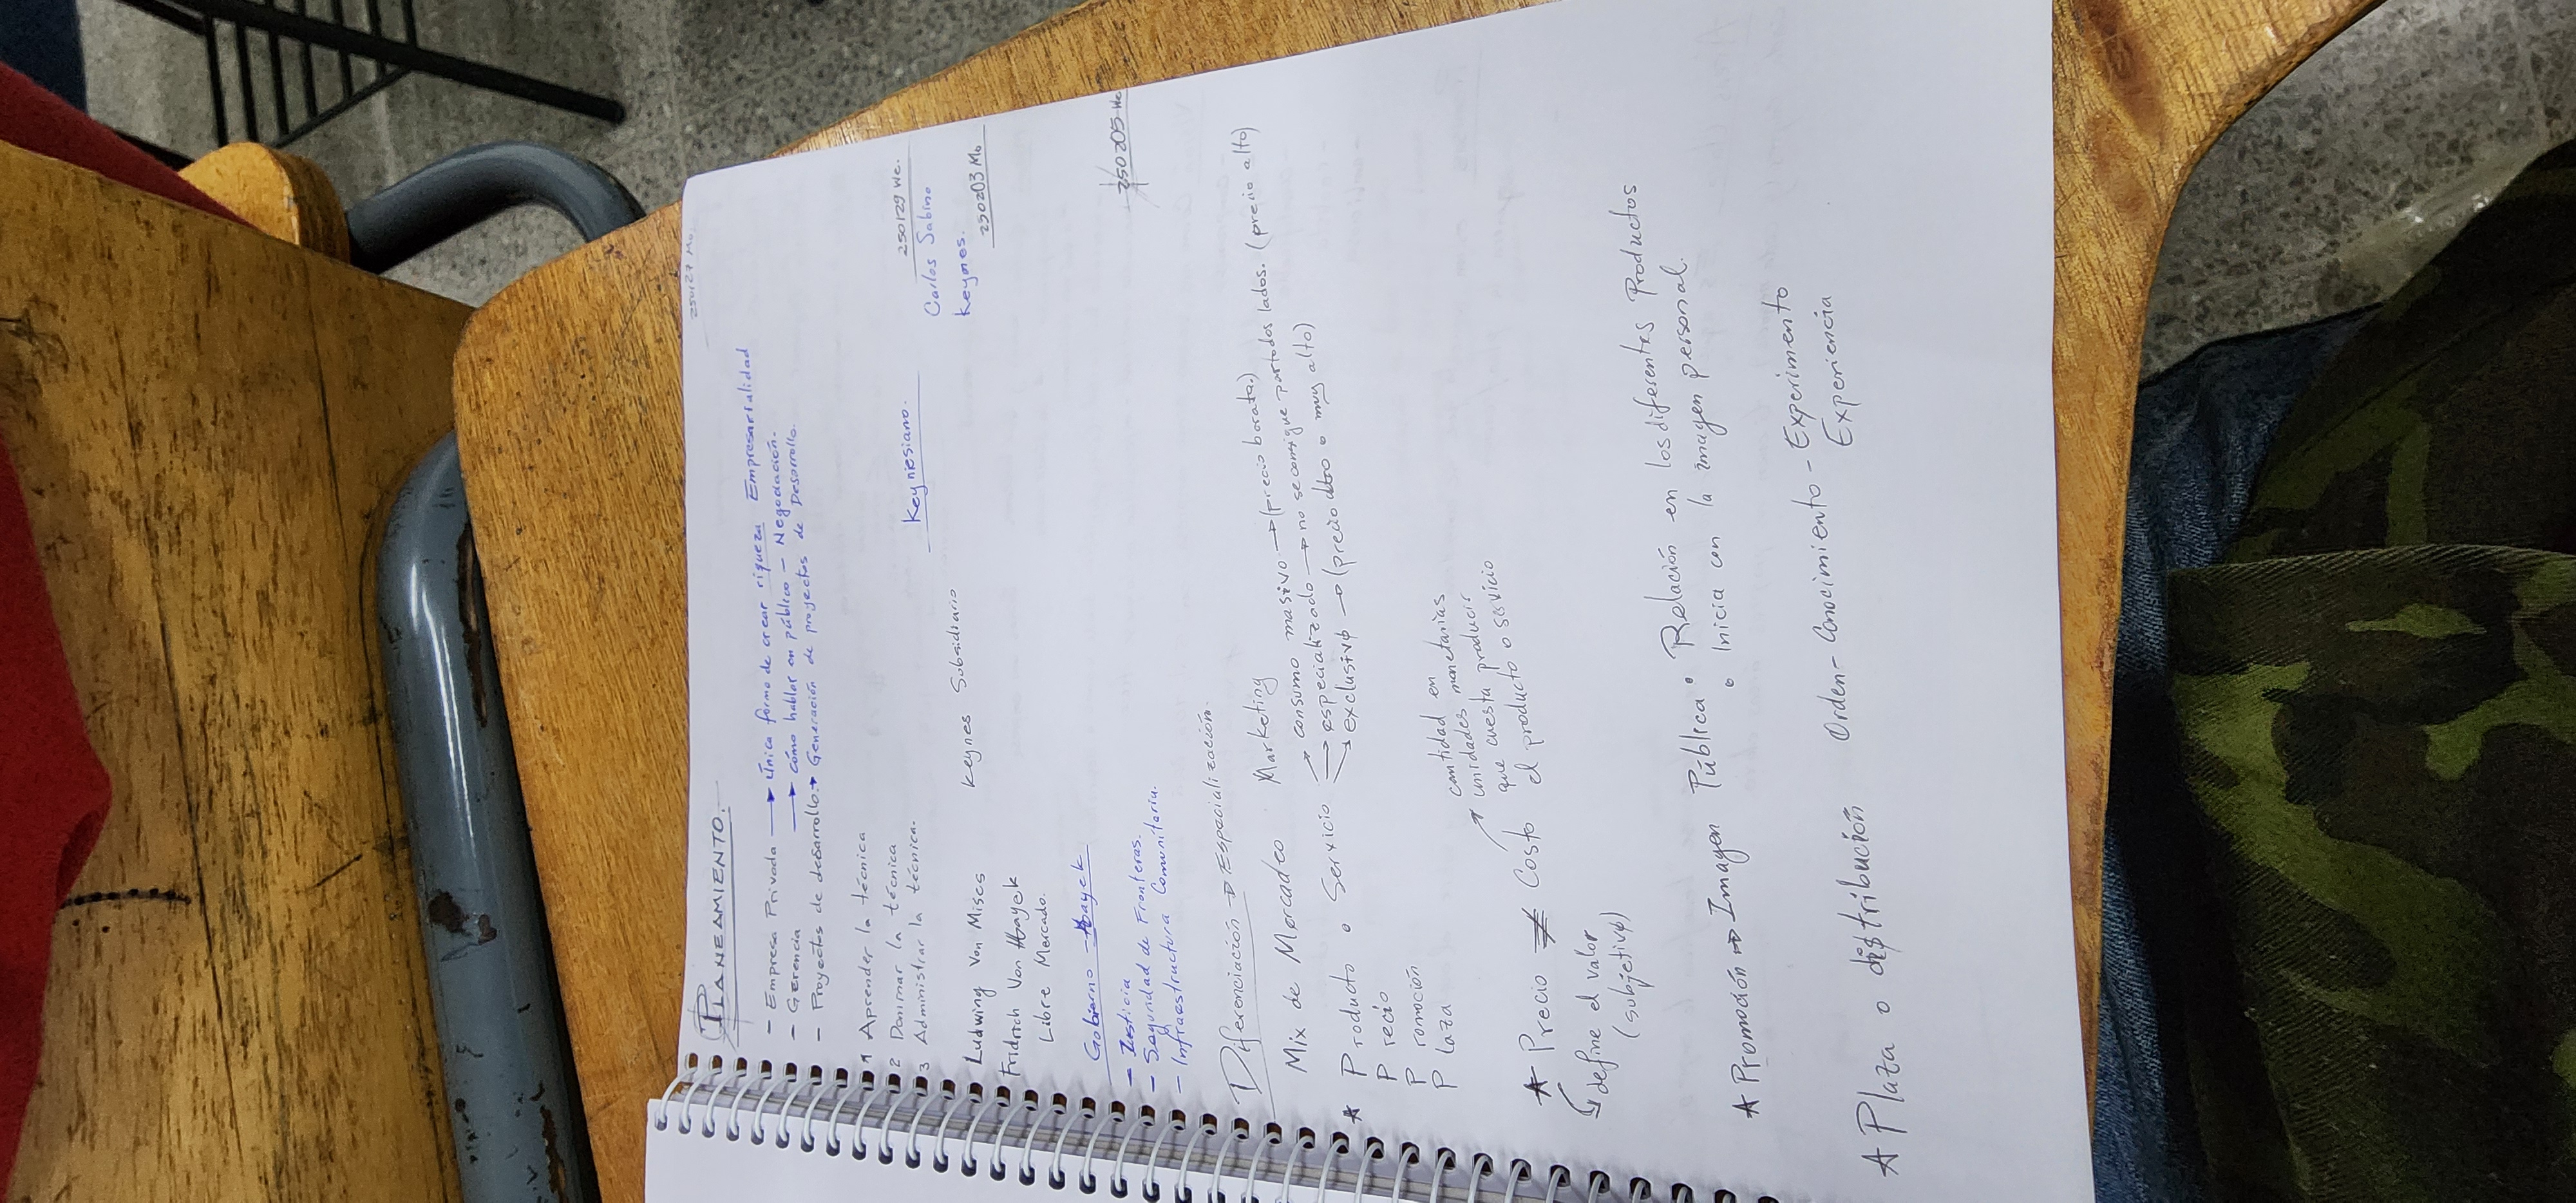 PLANEAMIENTO.
250127 Mo.
- Empresa Privada → Única forma de crear riqueza Empresarialidad
- Gerencia → cómo hablar en público - Negociación.
- Proyectos de desarrollo → Generación de proyectos de Desarrollo.
1 Aprender la técnica
2 Dominar la técnica
3 Administrar la técnica.
Keyniesiano.
250129 We.
Carlos Sabino
Keynes.
250203 Mo
Ludwing Von Mises
Keynes Subsidiario
Fridrich Von Hayek
Libre Mercado.
Gobierno - Hayek
250205 We
- Justicia
- Seguridad de Fronteras.
- Infraestructura Comunitaria.
Diferenciación → Especialización
Mix de Mercadeo Marketing
* Producto o Servicio → consumo masivo → (precio barata.)
→ especializado → no se consigue por todos lados. (precio alto)
→ exclusivo → (precio alto o muy alto)
P recio
P romoción
P laza
* Precio ≠ Costo
cantidad en
unidades monetarias
que cuesta producir
el producto o servicio
define el valor
(subjetivo)
* Promoción → Imagen Pública • Relación en los diferentes Productos
• Inicia con la imagen personal.
* Plaza o distribución Orden - Conocimiento - Experimento
Experiencia